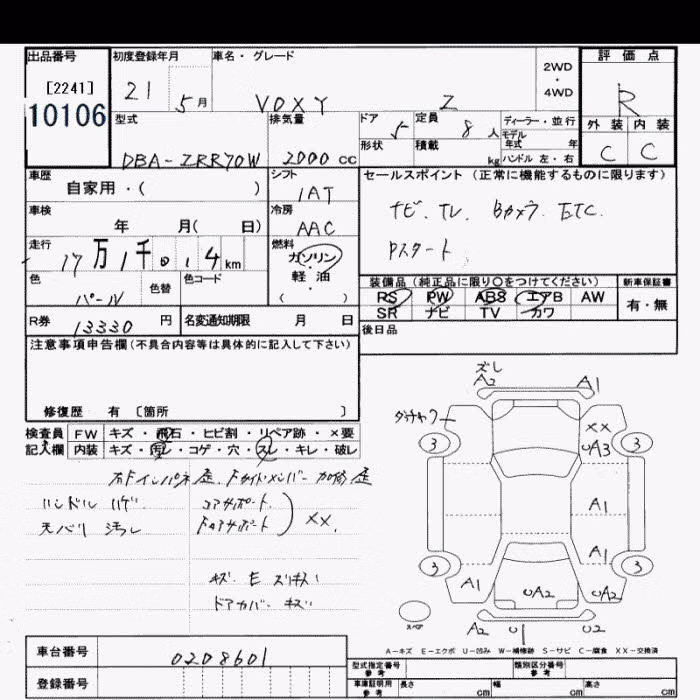 出品番号 初度登録年月 車名・グレード 評価点
[2241]
10106
21 5月 VOXY Z
2WD
・
4WD
R
型式 排気量 ドア 定員 ディーラー・並行
DBA-ZRR70W 2000cc 5 8人
モデル年式 年
形状 積載 kg ハンドル 左・右
外装 内装
C C
車歴 シフト セールスポイント(正常に機能するものに限ります)
自家用・( ) IAT
ナビ. TV. Bカメラ. ETC.
Pスタート
車検 冷房
年 月( 日) AAC
走行 燃料
17万1千0.4km
ガソリン
・
軽・油
( )
色 色替 色コード
パール
装備品(純正品に限り○をつけてください) 新車保証書
RS PW ABS エアB AW 有・無
SR ナビ TV カワ
R券 13330円 名変通知期限 月 日
後日品
注意事項申告欄(不具合内容等は具体的に記入して下さい)
修復歴 有 〔箇所 〕
検査員 FW キズ・飛石・ヒビ割・リペア跡・×要
記入欄 内装 キズ・汚レ・コゲ・穴・スレ・キレ・破レ
ハンドル ハゲ コアサポート.
天バリ 汚レ XX.
キズ E スリキズ
ドアカバー キズ
ズレ
A2 A1
XX
3 UA3 3
A1
A1
3 3
A1 UA2 UA2
スペア
A2 U1 U2
A-キズ E-エクボ U-凹み W-補修跡 S-サビ C-腐食 XX-交換済
車台番号 0208601
登録番号
型式指定番号 参考 類別区分番号 参考
車庫証明用 参考 長さ cm 幅 cm 高さ cm